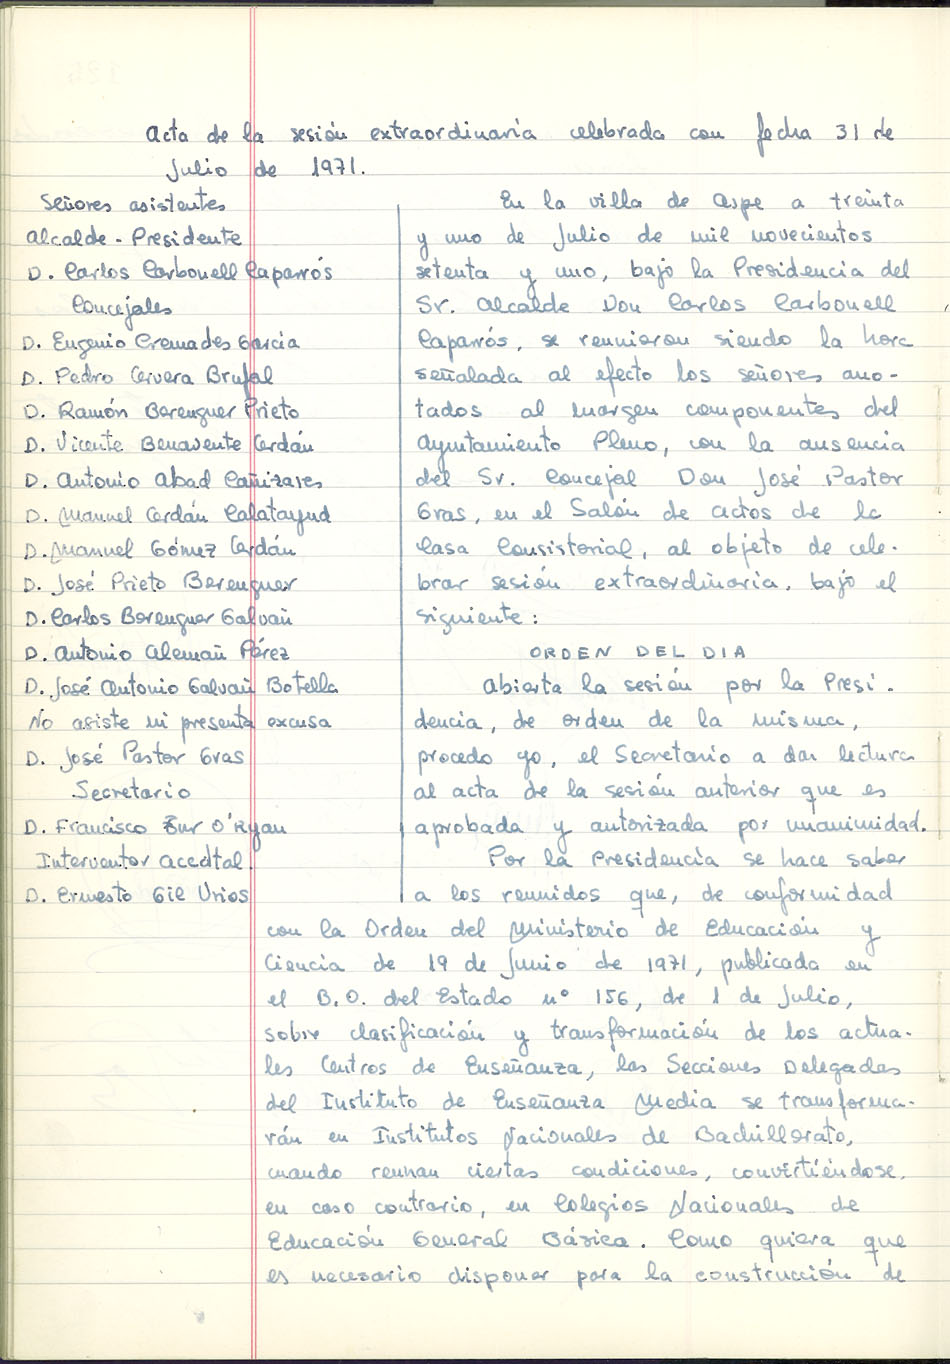 Acta de la sesión extraordinaria celebrada con fecha 31 de
Julio de 1971.
Señores asistentes
Alcalde - Presidente
D. Carlos Carbonell Caparrós
Concejales
D. Eugenio Cremades García
D. Pedro Cervera Brufal
D. Ramón Berenguer Prieto
D. Vicente Benavente Cerdán
D. Antonio Abad Cañizares
D. Manuel Cerdán Calatayud
D. Manuel Gómez Cerdán
D. José Prieto Berenguer
D. Carlos Berenguer Galvañ
D. Antonio Alemañ Pérez
D. José Antonio Galvañ Botella
No asiste ni presenta excusa
D. José Pastor Gras
Secretario
D. Francisco Zur O'Ryan
Interventor acedtal.
D. Ernesto Gil Urios
En la villa de Aspe a treinta
y uno de Julio de mil novecientos
setenta y uno, bajo la Presidencia del
Sr. Alcalde Don Carlos Carbonell
Caparrós, se reunieron siendo la hora
señalada al efecto los señores ano-
tados al margen componentes del
Ayuntamiento Pleno, con la ausencia
del Sr. Concejal Don José Pastor
Gras, en el Salón de actos de la
Casa Consistorial, al objeto de cele-
brar sesión extraordinaria, bajo el
siguiente:
ORDEN DEL DIA
Abierta la sesión por la Presi-
dencia, de orden de la misma,
procedo yo, el Secretario a dar lectura
al acta de la sesión anterior que es
aprobada y autorizada por unanimidad.
Por la Presidencia se hace saber
a los reunidos que, de conformidad
con la Orden del Ministerio de Educación y
Ciencia de 19 de Junio de 1971, publicada en
el B.O. del Estado nº 156, de 1 de Julio,
sobre clasificación y transformación de los actua-
les Centros de Enseñanza, las Secciones Delegadas
del Instituto de Enseñanza Media se transforma-
rán en Institutos Nacionales de Bachillerato,
cuando reunan ciertas condiciones, convirtiéndose,
en caso contrario, en Colegios Nacionales de
Educación General Básica. Como quiera que
es necesario disponer para la construcción de